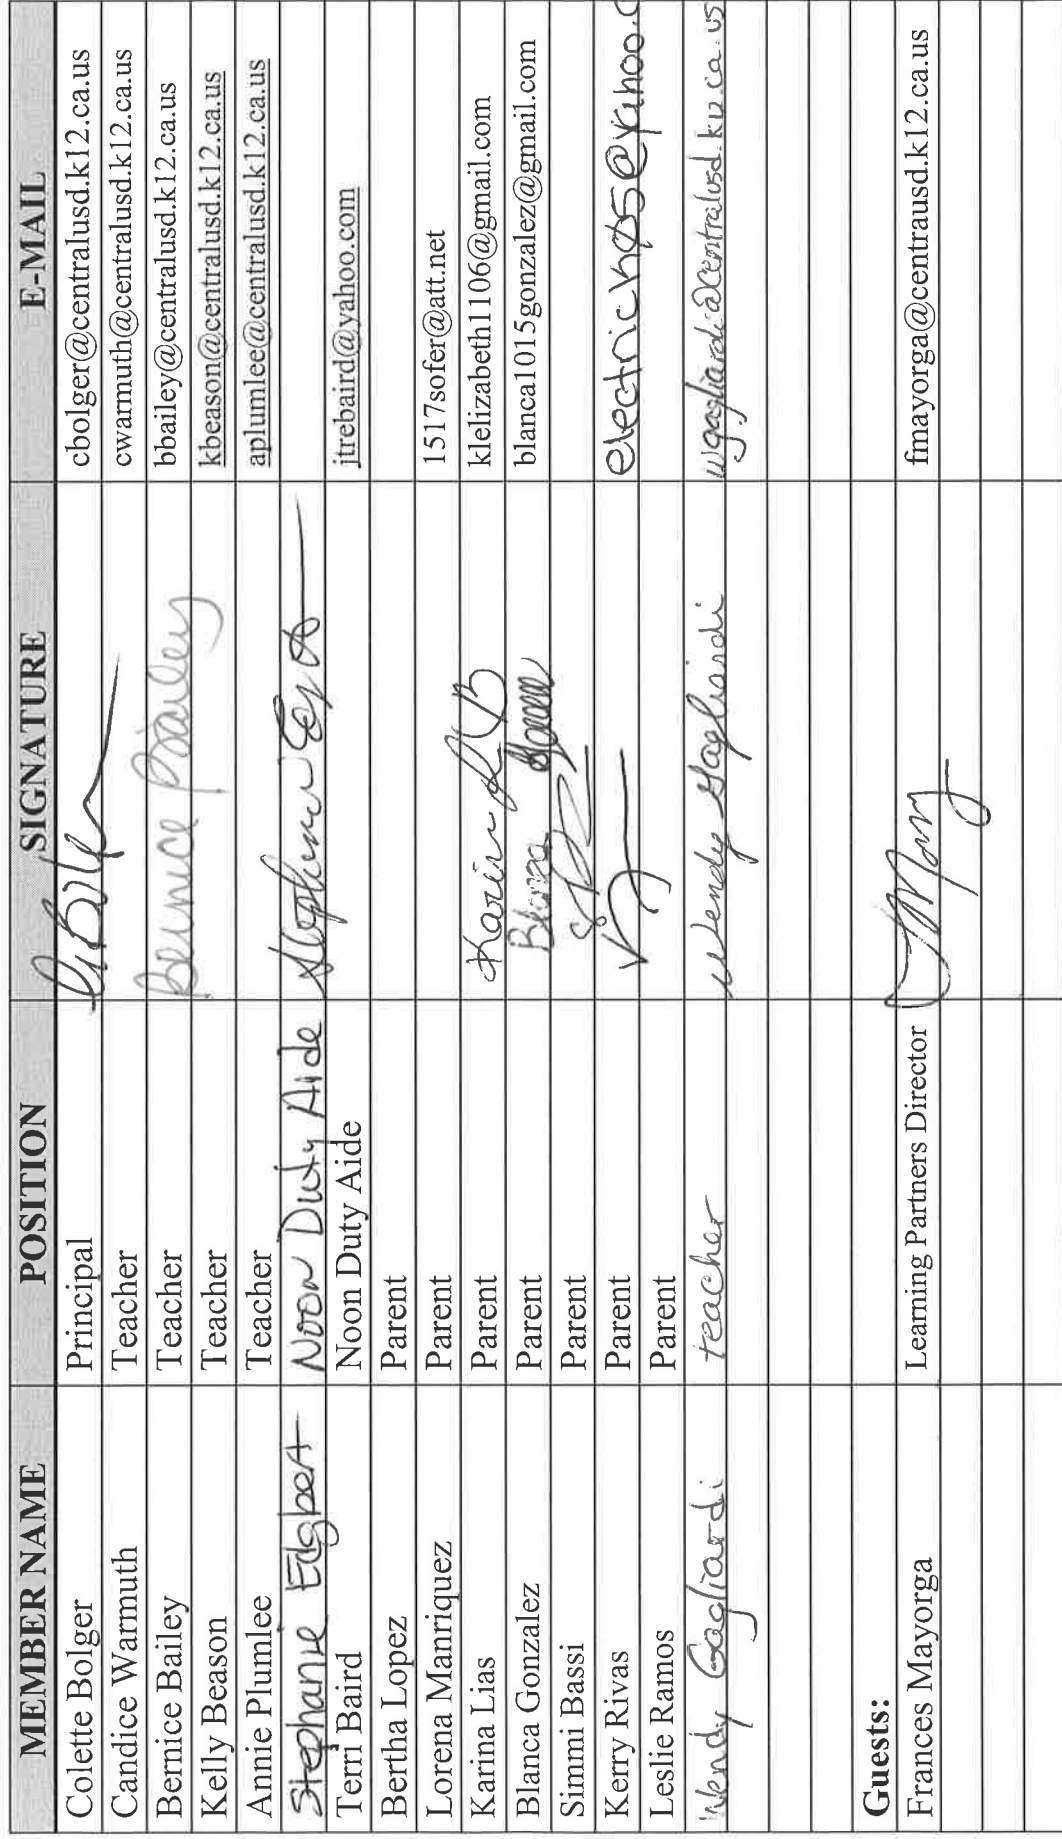 MEMBER NAME POSITION SIGNATURE E-MAIL
Colette Bolger Principal cbolger@centralusd.k12.ca.us
Candice Warmuth Teacher cwarmuth@centralusd.k12.ca.us
Bernice Bailey Teacher Bernice Bailey bbailey@centralusd.k12.ca.us
Kelly Beason Teacher kbeason@centralusd.k12.ca.us
Annie Plumlee Teacher aplumlee@centralusd.k12.ca.us
Stephanie Edgbert Noon Duty Aide
Terri Baird Noon Duty Aide jtrebaird@yahoo.com
Bertha Lopez Parent
Lorena Manriquez Parent 1517sofer@att.net
Karina Lias Parent Karina klelizabeth1106@gmail.com
Blanca Gonzalez Parent Blanca blanca1015gonzalez@gmail.com
Simmi Bassi Parent
Kerry Rivas Parent
Leslie Ramos Parent
Wendy Gagliardi teacher Wendy Gagliardi wgagliardi@centralusd.k12.ca.us
Guests:
Frances Mayorga Learning Partners Director fmayorga@centrausd.k12.ca.us